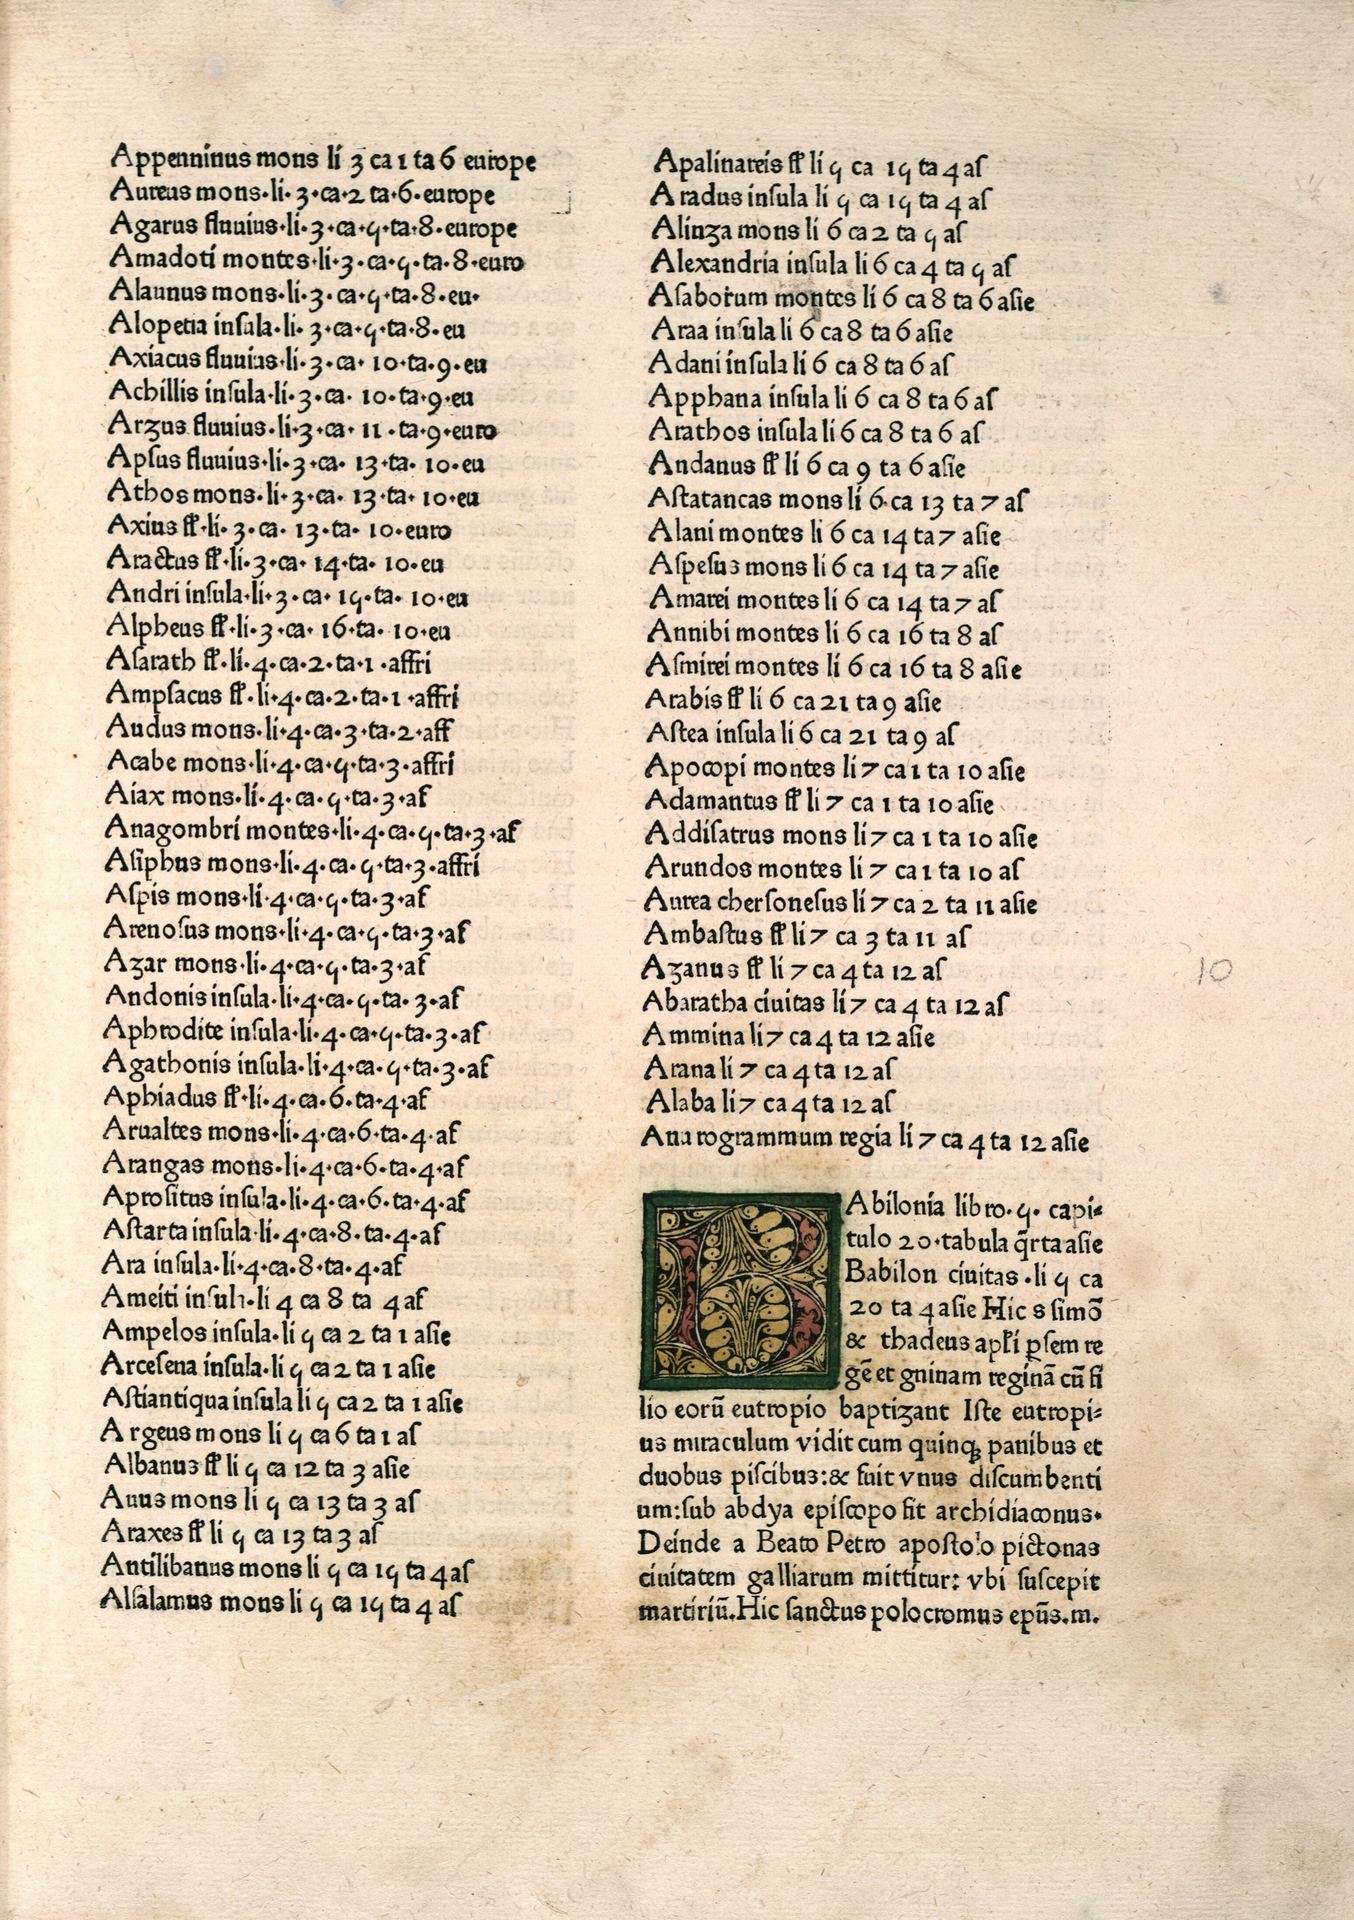 Appenninus mons li 3 ca 1 ta 6 europe
Aureus mons·li·3·ca·2 ta·6·europe
Agarus fluuius·li·3·ca·5·ta·8·europe
Amadoti montes·li·3·ca·5·ta·8·euro
Alaunus mons·li·3·ca·5·ta·8·eu·
Alopetia insula·li·3·ca·5·ta·8·eu
Axiacus fluuius·li·3·ca·10·ta·9·eu
Achillis insula·li·3·ca·10·ta·9·eu
Arzus fluuius·li·3·ca·11·ta·9·euro
Apsus fluuius·li·3·ca·13·ta·10·eu
Athos mons·li·3·ca·13·ta·10·eu
Axius fl·li·3·ca·13·ta·10·euro
Aractus fl·li·3·ca·14·ta·10·eu
Andri insula·li·3·ca·15·ta·10·eu
Alpheus fl·li·3·ca·16·ta·10·eu
Asarath fl·li·4·ca·2·ta·1·affri
Ampsacus fl·li·4·ca·2·ta·1·affri
Audus mons·li·4·ca·3·ta·2·aff
Acabe mons·li·4·ca·5·ta·3·affri
Aiax mons·li·4·ca·5·ta·3·af
Anagombri montes·li·4·ca·5·ta·3·af
Asiphus mons·li·4·ca·5·ta·3·affri
Aspis mons·li·4·ca·5·ta·3·af
Arenosus mons·li·4·ca·5·ta·3·af
Azar mons·li·4·ca·5·ta·3·af
Andonis insula·li·4·ca·5·ta·3·af
Aphrodite insula·li·4·ca·5·ta·3·af
Agathonis insula·li·4·ca·5·ta·3·af
Aphiadus fl·li·4·ca·6·ta·4·af
Arualtes mons·li·4·ca·6·ta·4·af
Arangas mons·li·4·ca·6·ta·4·af
Aprositus insula·li·4·ca·6·ta·4·af
Astarta insula·li·4·ca·8·ta·4·af
Ara insula·li·4·ca·8·ta·4·af
Ameiti insula·li 4 ca 8 ta 4 af
Ampelos insula·li 5 ca 2 ta 1 asie
Arcesena insula·li 5 ca 2 ta 1 asie
Astiantiqua insula li 5 ca 2 ta 1 asie
Argeus mons li 5 ca 6 ta 1 as
Albanus fl li 5 ca 12 ta 3 asie
Auus mons li 5 ca 13 ta 3 as
Araxes fl li 5 ca 13 ta 3 as
Antilibanus mons li 5 ca 15 ta 4 as
Alsalamus mons li 5 ca 15 ta 4 as
Apalinareis fl li 5 ca 15 ta 4 as
Aradus insula li 5 ca 15 ta 4 as
Alinza mons li 6 ca 2 ta 5 as
Alexandria insula li 6 ca 4 ta 5 as
Asaborum montes li 6 ca 8 ta 6 asie
Araa insula li 6 ca 8 ta 6 asie
Adani insula li 6 ca 8 ta 6 as
Apphana insula li 6 ca 8 ta 6 as
Arathos insula li 6 ca 8 ta 6 as
Andanus fl li 6 ca 9 ta 6 asie
Astatancas mons li 6 ca 13 ta 7 as
Alani montes li 6 ca 14 ta 7 asie
Aspesus mons li 6 ca 14 ta 7 asie
Amarei montes li 6 ca 14 ta 7 as
Annibi montes li 6 ca 16 ta 8 as
Asmirei montes li 6 ca 16 ta 8 asie
Arabis fl li 6 ca 21 ta 9 asie
Astea insula li 6 ca 21 ta 9 as
Apocopi montes li 7 ca 1 ta 10 asie
Adamantus fl li 7 ca 1 ta 10 asie
Addisatrus mons li 7 ca 1 ta 10 asie
Arundos montes li 7 ca 1 ta 10 as
Aurea chersonesus li 7 ca 2 ta 11 asie
Ambastus fl li 7 ca 3 ta 11 as
Azanus fl li 7 ca 4 ta 12 as
Abaratha ciuitas li 7 ca 4 ta 12 as
Ammina li 7 ca 4 ta 12 asie
Arana li 7 ca 4 ta 12 as
Alaba li 7 ca 4 ta 12 as
Anurogrammum regia li 7 ca 4 ta 12 asie
BAbilonia libro·5· capi⸗
tulo 20·tabula q̄rta asie
Babilon ciuitas·li 5 ca
20 ta 4 asie Hic s simō
& thadeus apl̄i ꝑsem re
gē et gninam reginā cū fi
lio eorū eutropio baptizant Iste eutropi⸗
us miraculum vidit cum quinqꝫ panibus et
duobus piscibus:& fuit vnus discumbenti
um:sub abdya episcopo fit archidiaconus·
Deinde a Beato Petro apostolo pictonas
ciuitatem galliarum mittitur: vbi suscepit
martiriū.Hic sanctus polocromus epūs.m.
10